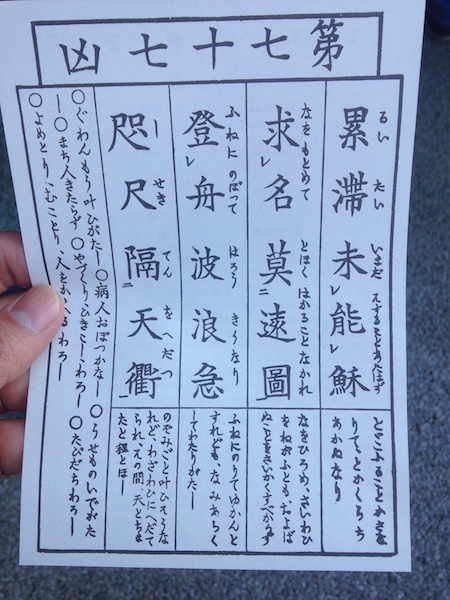 第七十七凶
るい たい いまだ そすることあたはず
累滞未レ能レ穌
とゞこふることかさな
りて、とかくらち
あかぬなり
なを もとめて とほく はかることなかれ
求レ名莫二遠圖一
なをひろめ、さいわひ
をねがふとも、およば
ぬことをさいかくすべからず
ふねに のぼつて はろう きうなり
登レ舟波浪急
ふねにのりてゆかんと
すれども、なみあらく
してわたりがたし
しせき てんをへだつ
咫尺隔二天衢一
のぞみごと叶ひそうな
れど、わざわひにへだて
られ、その間天とち
たと程とほし
○ぐわんもう叶ひがたし ○病人おぼつかなし ○うせものいでがた
し ○まち人きたらず ○やづくり、ひきこし、わろし ○たびだちわろし
○よめとり、むことり、人をかゝるわろし